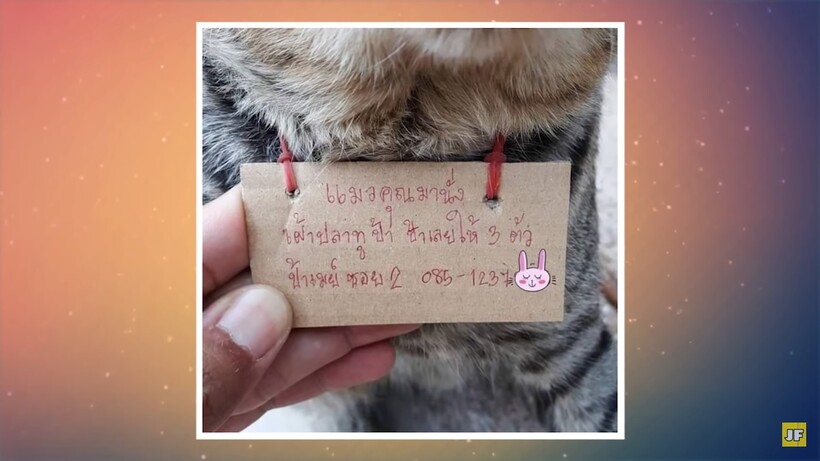 แมวคุณมานั่ง
เฝ้าปลาทูป้า ป้าเลยให้ 3 ตัว
ป้าเมย์ ซอย 2 085-123
JF